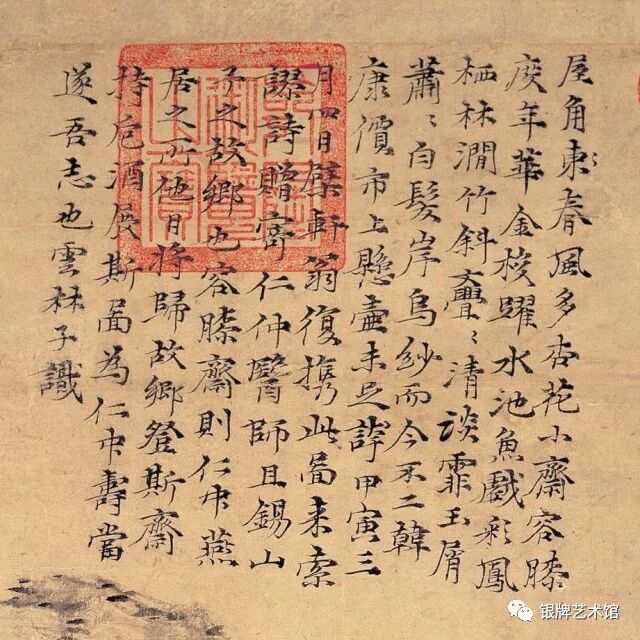 屋角東春風多杏花小齋容膝
度年華金梭躍水池魚戲彩鳳
栖林澗竹斜亹〻清談霏玉屑
蕭〻白髮岸烏紗而今不二韓
康價市上懸壺未足誇甲寅三
月四日檗軒翁復携此圖来索
謬詩贈寄仁仲醫師且錫山
予之故鄉也容膝齋則仁仲燕
居之所他日將歸故鄉登斯齋
持卮酒展斯圖為仁仲壽當
遂吾志也雲林子識
银牌艺术馆